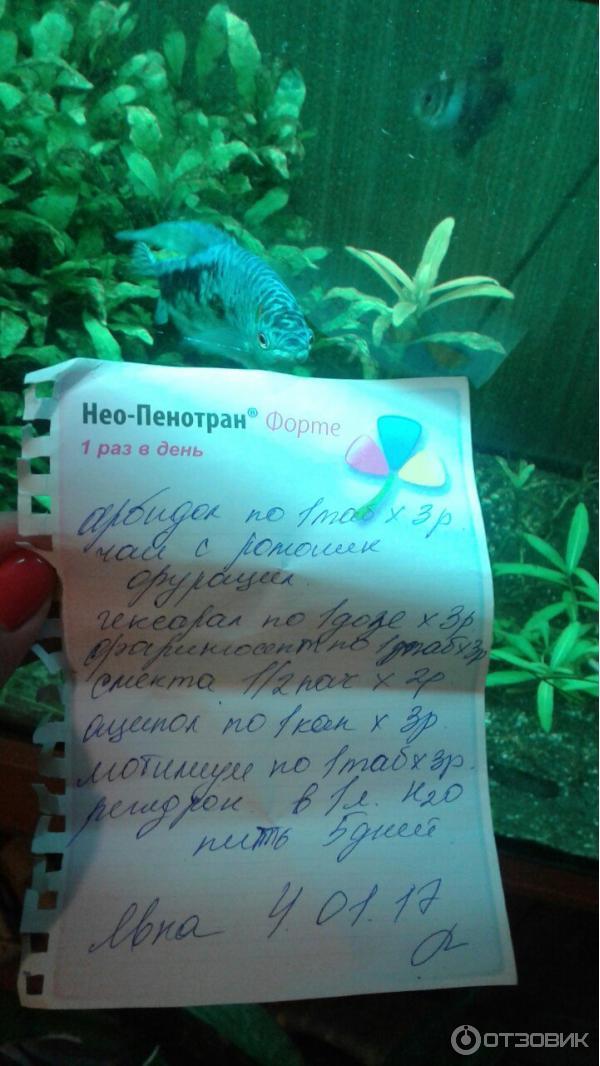 Нео-Пенотран® Форте
1 раз в день
арбидол по 1 таб х 3 р.
чай с ромашк
фурацил
гексорал по 1 дозе х 3р
фарингосепт по 1 таб х 3р
смекта 1/2 пач х 2р
аципол по 1 кап х 3р.
мотилиум по 1 таб х 3р.
регидрон в 1 л. H2O
пить 5 дней
Явка 4.01.17
ОТЗОВИК